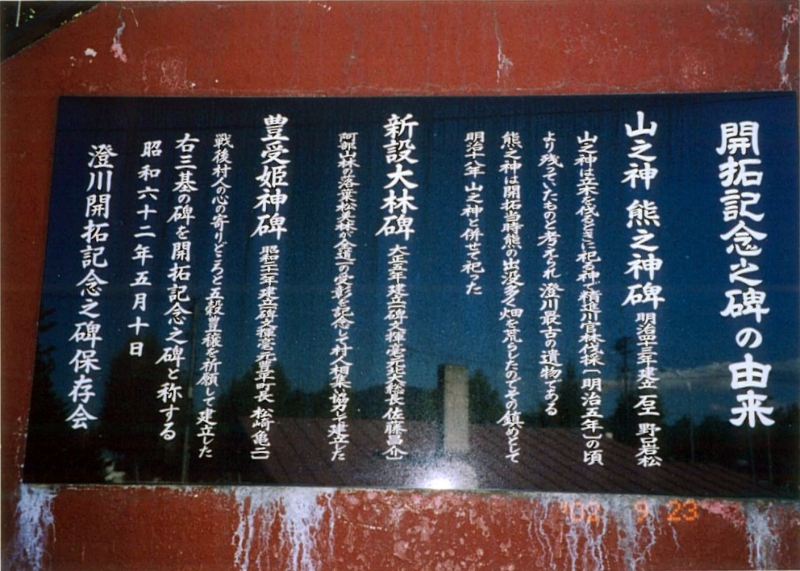 開拓記念之碑の由来
山之神 熊之神碑 明治四十三年建立 石工 野呂岩松
山之神は立木を伐るときに祀る神 精進川官林伐採(明治五年)の頃
より残っていたものと考えられ 澄川最古の遺物である
熊之神は開拓当時熊の出没多く畑を荒らしたのでその鎮めとして
明治十八年 山之神と併せて祀った
新設大林碑 大正五年建立 碑文揮毫 北大総長 佐藤昌介
阿部山林の落葉松美林が全道一の受彰を記念して村人相集い協力し建立した
豊受姫神碑 昭和二十三年建立 碑文揮毫 元豊平町長 松崎亀二
戦後村人心の寄りどころと五穀豊穣を祈願して建立した
右三基の碑を開拓記念之碑と称する
昭和六十二年五月十日
澄川開拓記念之碑保存会
'02 9 23